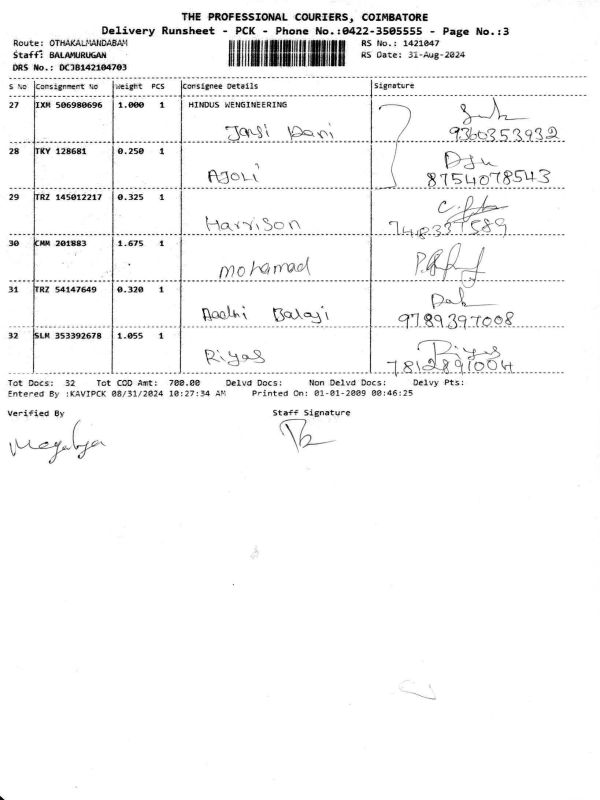 THE PROFESSIONAL COURIERS, COIMBATORE
Delivery Runsheet - PCK - Phone No.:0422-3505555 - Page No.:3
Route: OTHAKALMANDABAM RS No.: 1421047
Staff: BALAMURUGAN RS Date: 31-Aug-2024
DRS No.: DCJB142104703
S No Consignment No Weight PCS Consignee Details Signature
27 IXM 506980696 1.000 1 HINDUS WENGINEERING
Rani
9360353932
28 TKY 128681 0.250 1
AJOLi
8754078543
29 TRZ 145012217 0.325 1
Harrison
7448337589
30 CMM 201883 1.675 1
mohamad
31 TRZ 54147649 0.320 1
Balaji
9789397008
32 SLM 353392678 1.055 1
Riyas Riyas
7812891004
Tot Docs: 32 Tot COD Amt: 700.00 Delvd Docs: Non Delvd Docs: Delvy Pts:
Entered By :KAVIPCK 08/31/2024 10:27:34 AM Printed On: 01-01-2009 00:46:25
Verified By Staff Signature